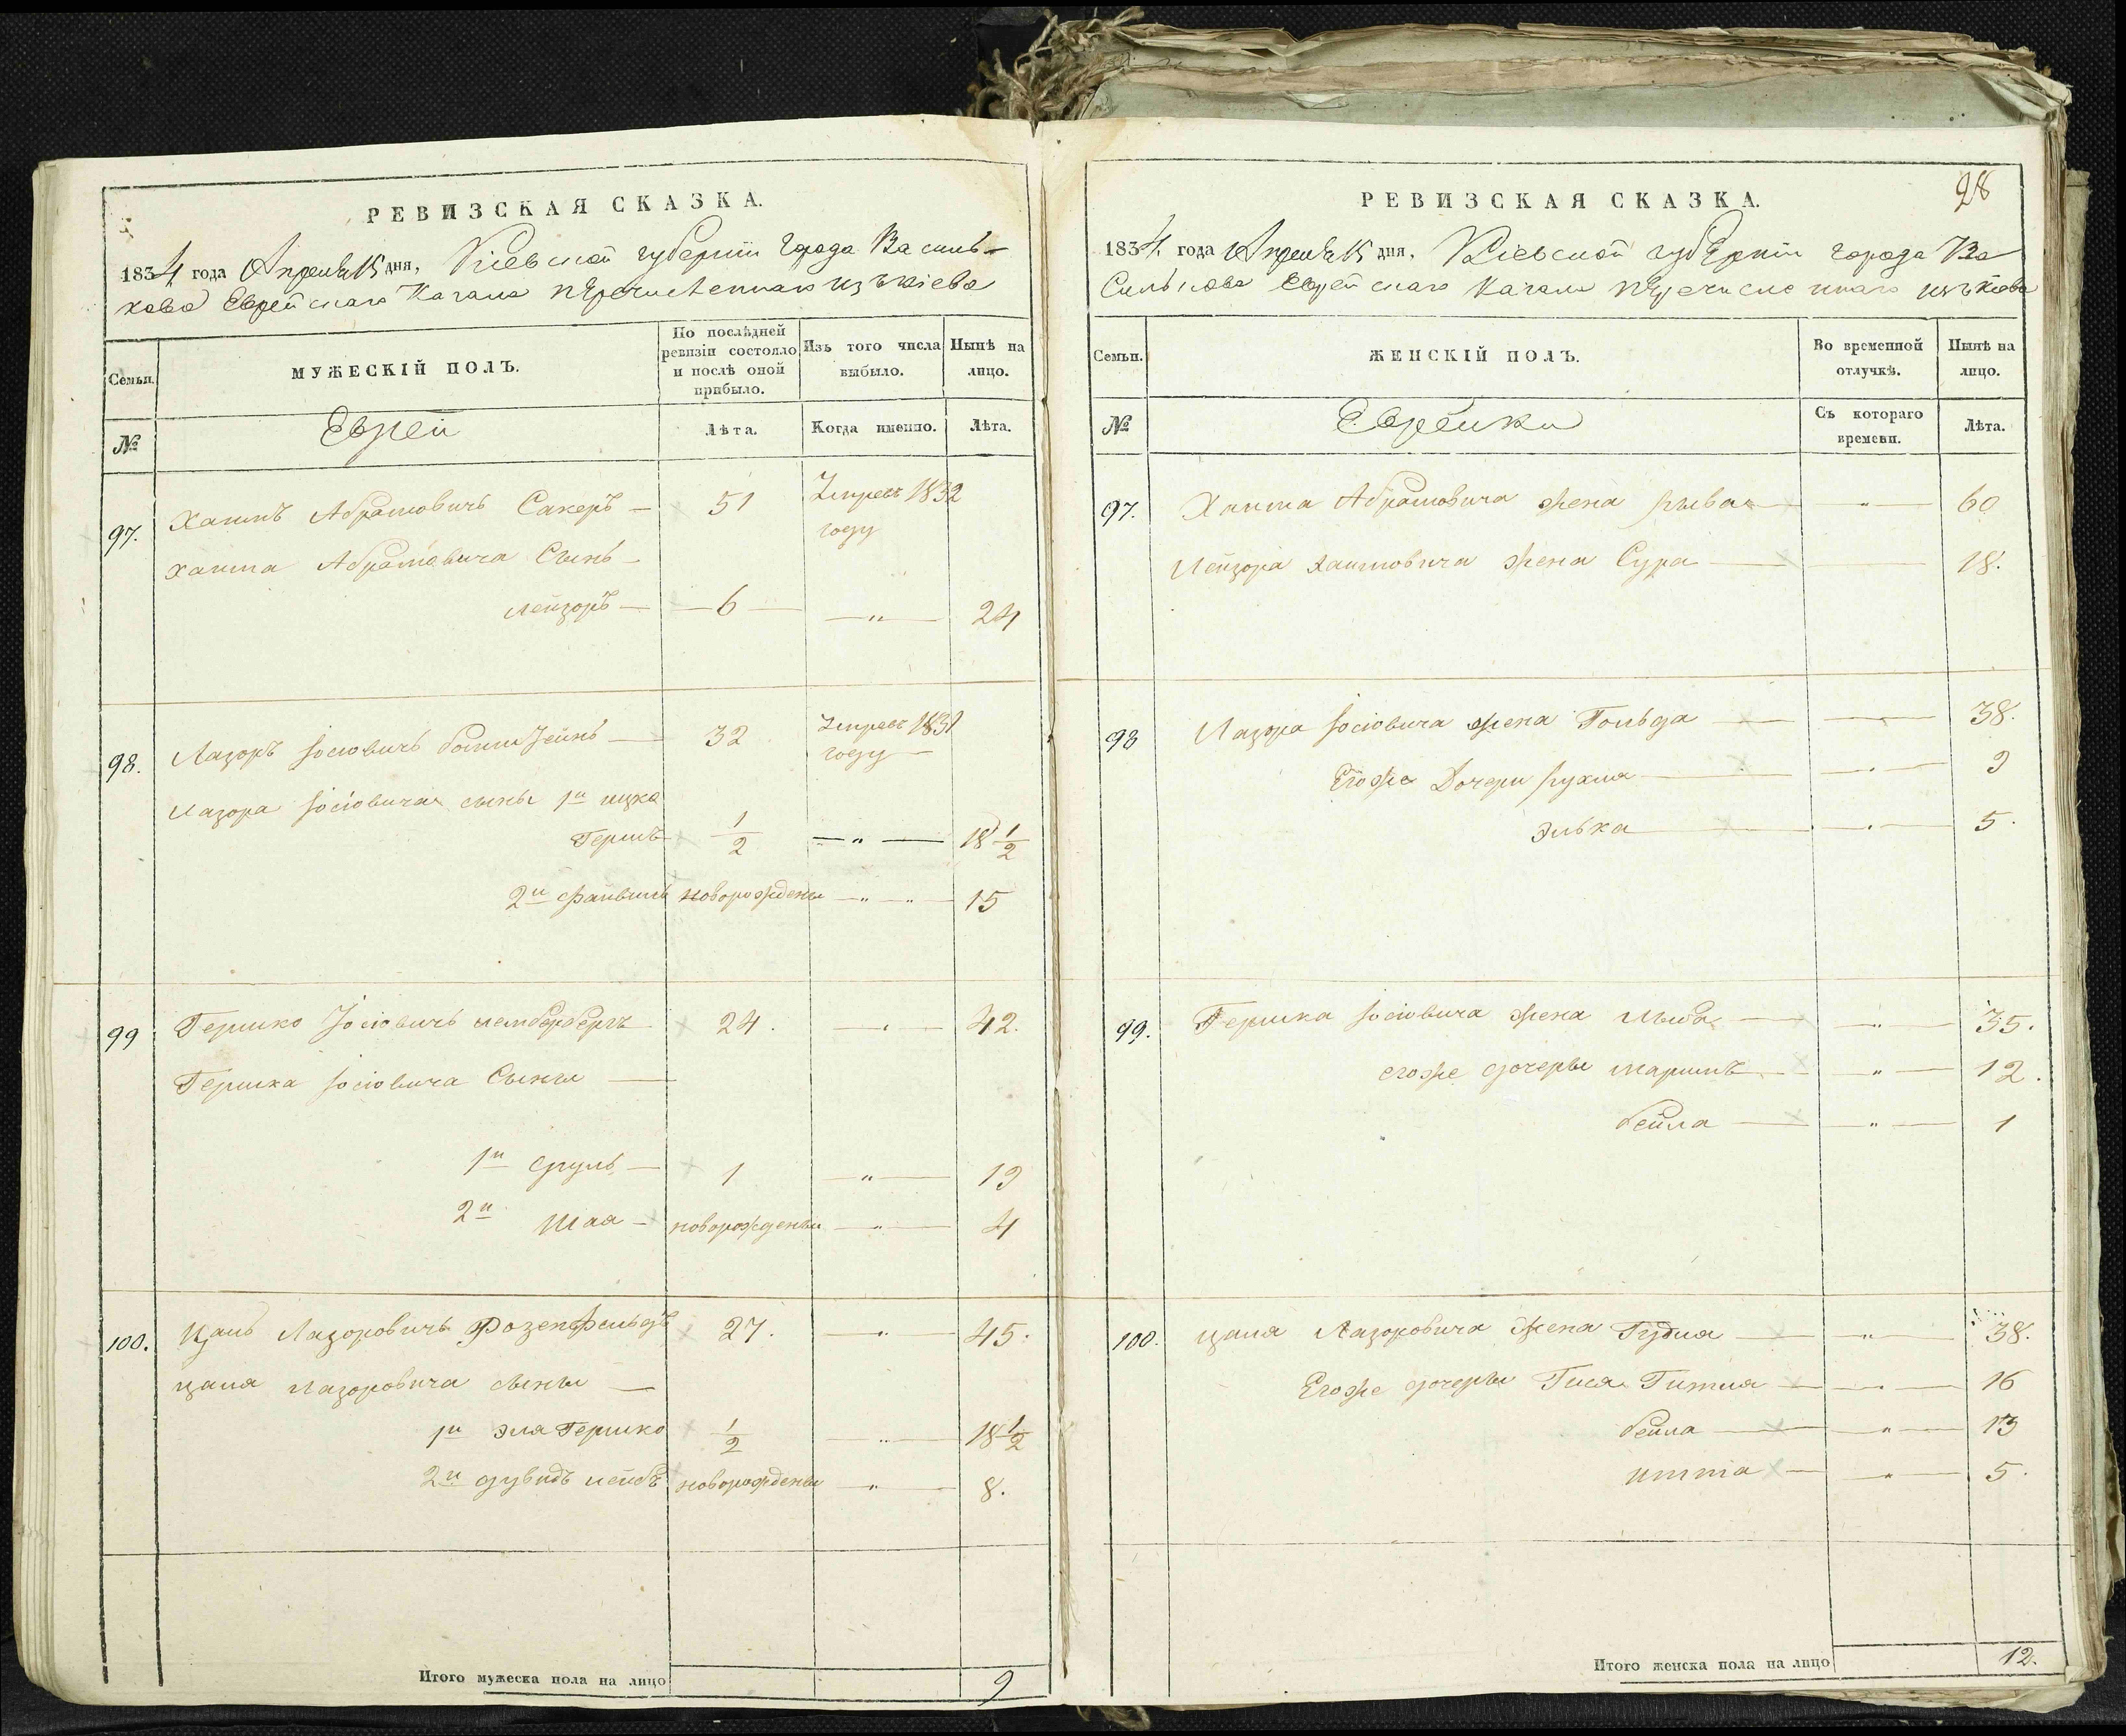 РЕВИЗСКАЯ СКАЗКА.
1834 года Апреля 15 дня, Кіевской губерніи города Василь-
кова Еврейскаго Кагала перечисленнаго изъ Кіева
Семьи.
МУЖЕСКІЙ ПОЛЪ.
По послѣдней ревизіи состояло и послѣ оной прибыло.
Изъ того числа выбыло.
Нынѣ на лицо.
№
Евреи
Лѣта.
Когда именно.
Лѣта.
97. Хаимъ Абрамовичъ Сакеръ — 51 Умре въ 1832
году
Хаима Абрамовича Сынъ —
Лейзоръ — — 6 — — " — 24
98. Лазоръ Іосіовичъ — 32 Умре въ 1831
году —
Лазора Іосіовича сыны 1й ицко
Гершъ 1/2 — " — 18 1/2
2й Файвишъ новорожденъ — " " — 15
99 Гершко Іосіовичъ лембербергъ 24. — " — 42.
Гершка Іосіовича Сыны —
1й сруль — 1 — " — 19
2й шая — новорожденъ — " — 4
100. Цаль Лазоровичъ Розенфельдъ 27. — " — 45.
цаля лазоровича сыны —
1й эля Гершко 1/2 — " — 18 1/2
2й дувидъ лейбъ новорожденъ — " — 8.
Итого мужеска пола на лицо 9
28
РЕВИЗСКАЯ СКАЗКА.
1834 года Апреля 15 дня, Кіевской губерніи города Ва
силькова Еврейскаго Кагала перечисленнаго изъ Кіева
Семьи.
ЖЕНСКІЙ ПОЛЪ.
Во временной отлучкѣ.
Нынѣ на лицо.
№
Еврейки
Съ котораго времени.
Лѣта.
97. Хаима Абрамовича жена рыва — " — 60
Лейзора Хаимовича жена Сура — 18.
98 Лазора Іосіовича жена Гольда — 38.
Егоже Дочери рухля — " — 9
Элька — " — 5.
99. Гершка Іосіовича жена — " — 35.
егоже дочеры — " — 12.
бейла — " — 1
100. цаля Лазоровича жена Гудля — " — 38.
Егоже дочеры Гися Гитля — " — 16
бейла — " — 13
итта — " — 5.
Итого женска пола на лицо 12.